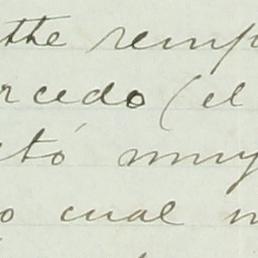 the remp
rcedo (el
ctó muy
o cual n